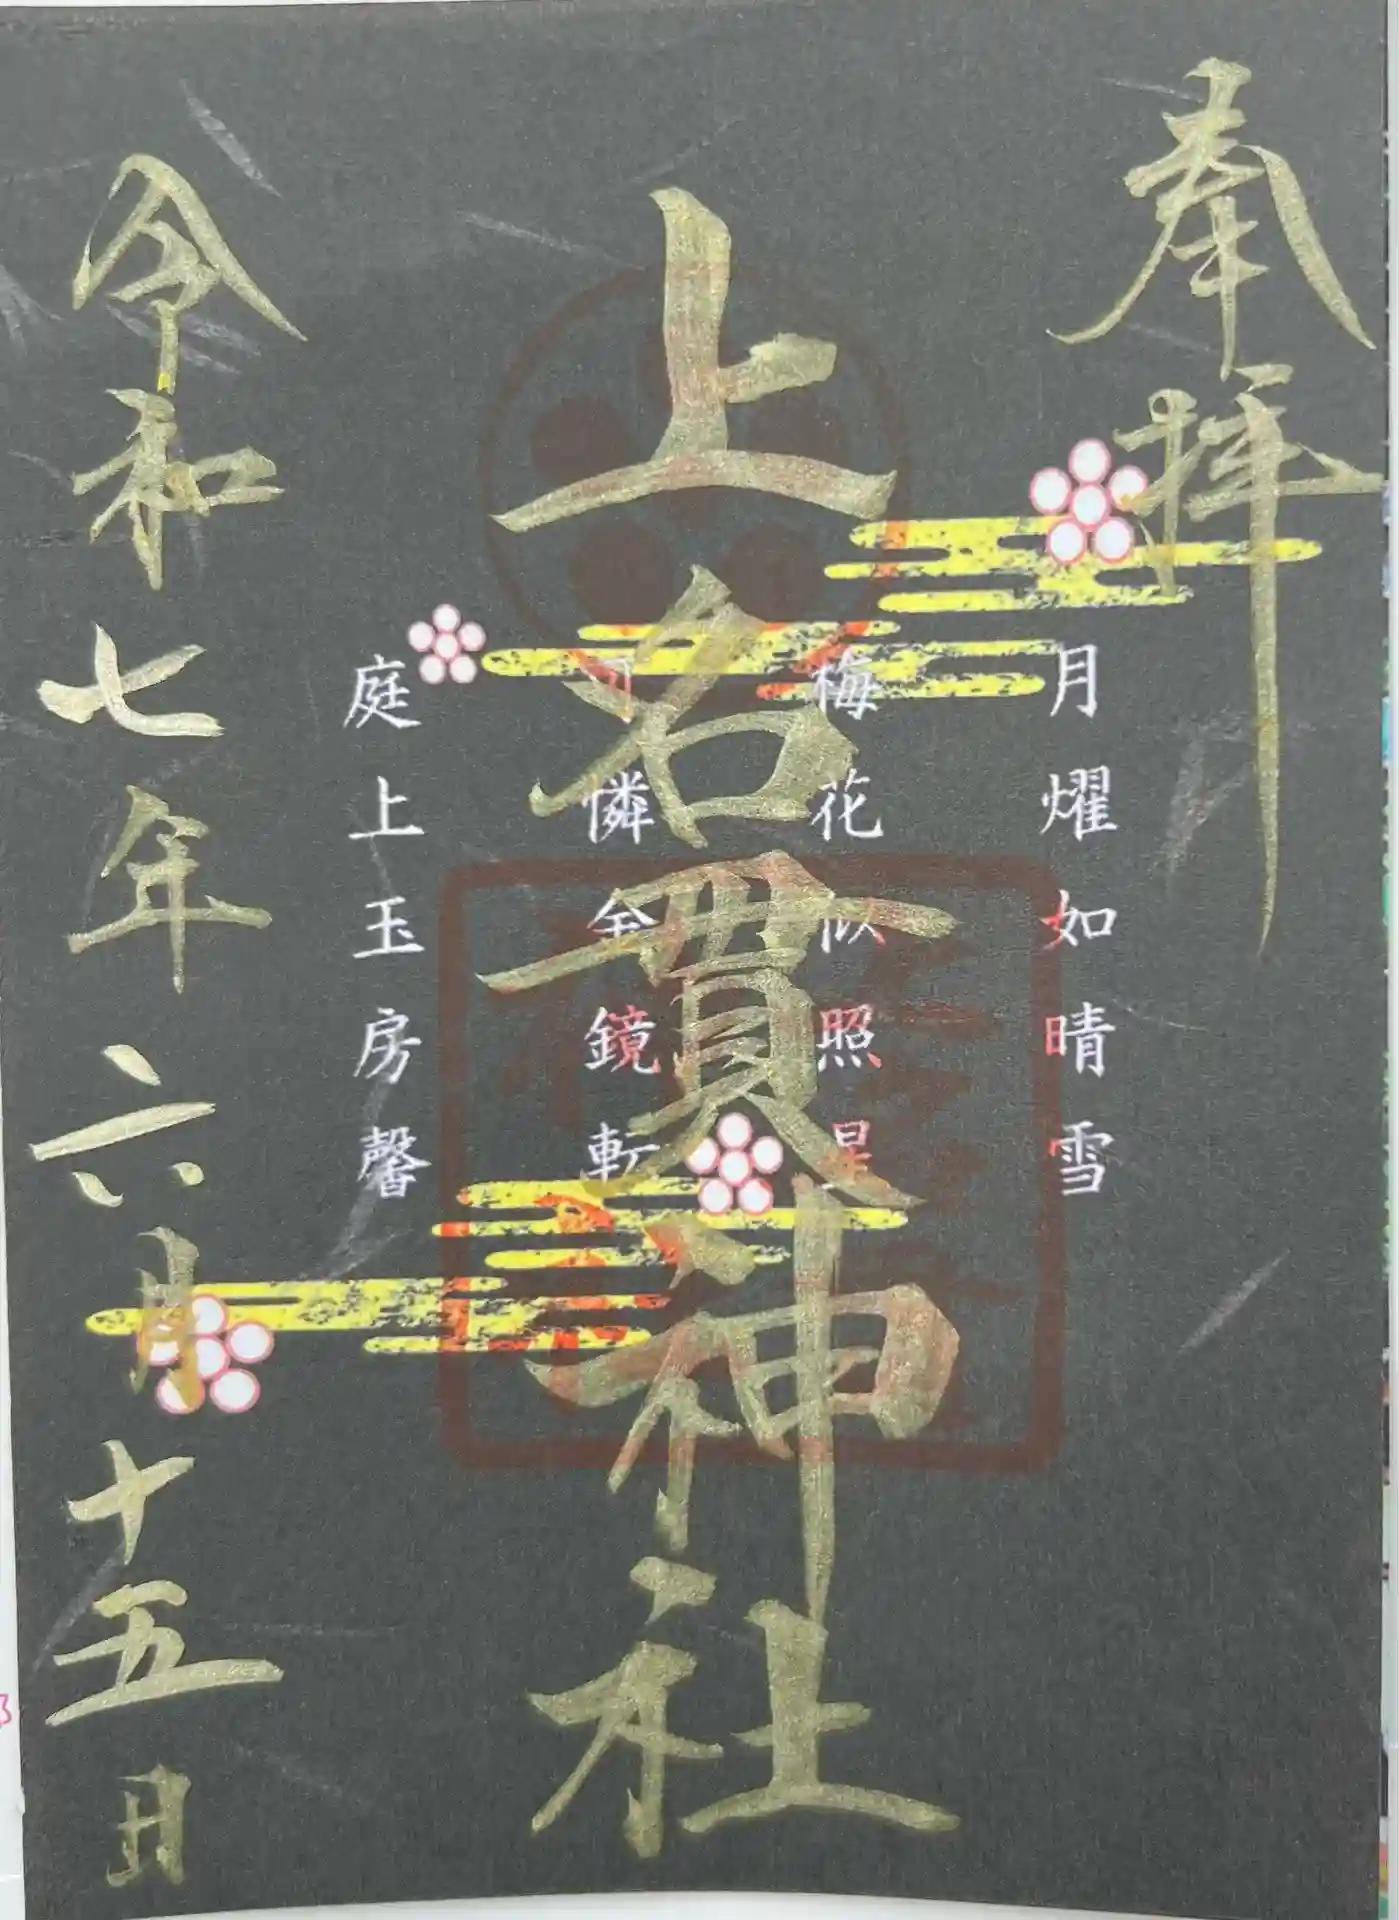 奉拝
月燿如晴雪
梅花似照星
上名貫神社
可憐金鏡転
庭上玉房馨
令和七年六月十五日